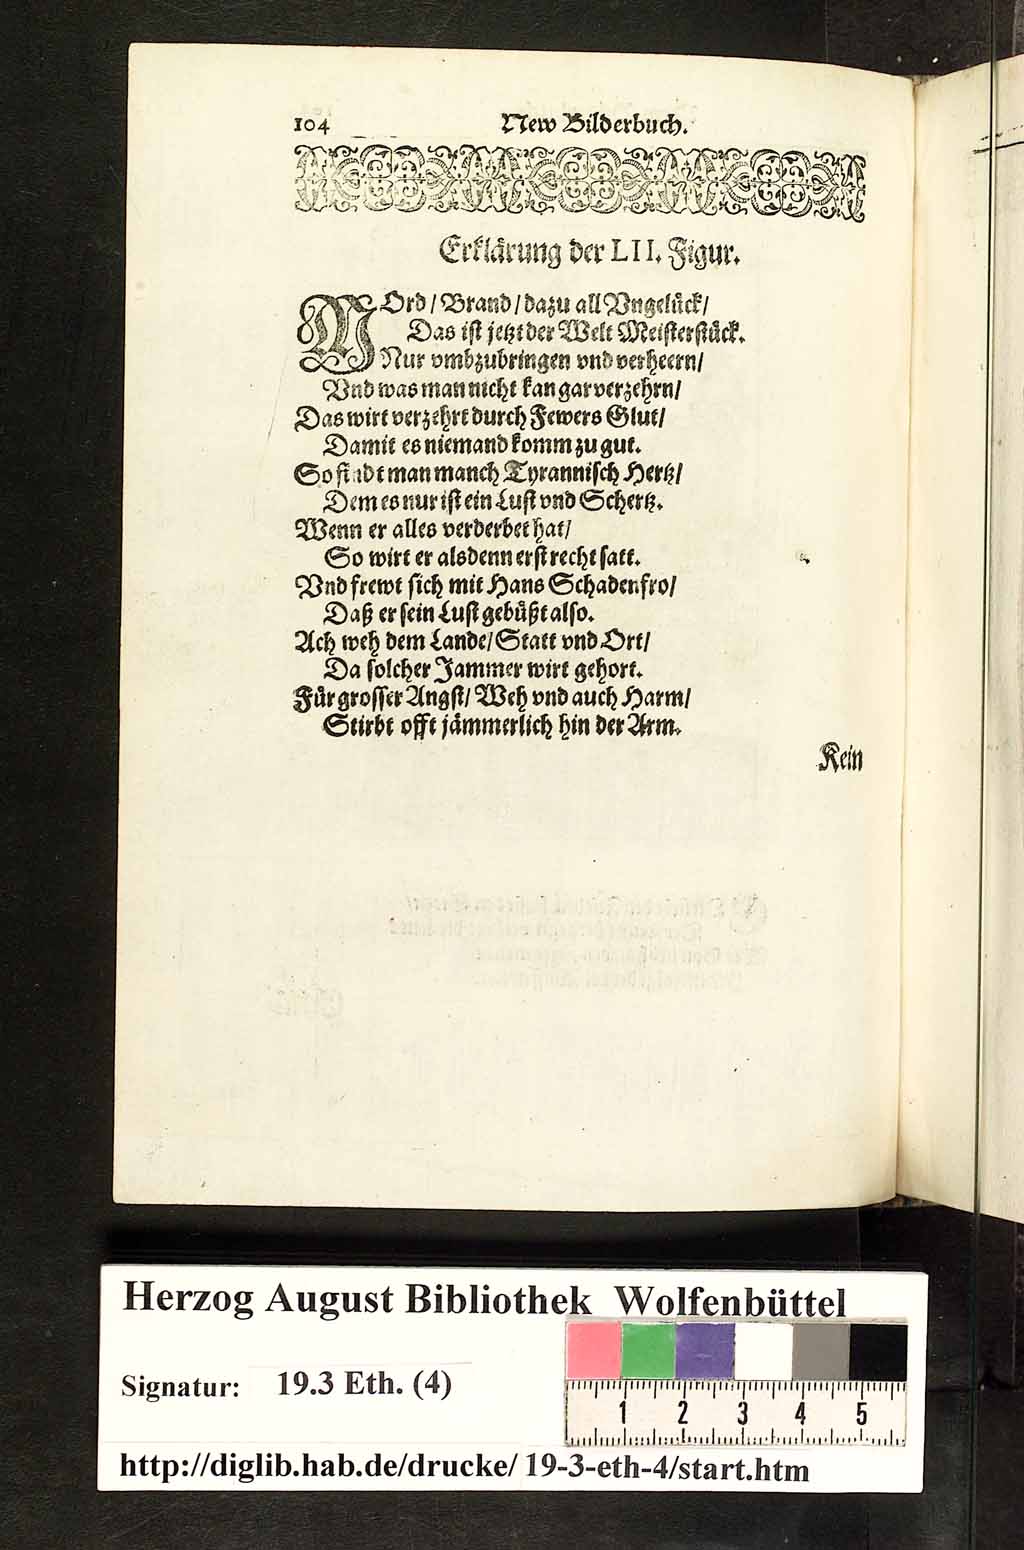 104 New Bilderbuch.
Erklärung der LII. Figur.
MOrd / Brand / dazu all Vngelück /
Das ist jetzt der Welt Meisterstück.
Nur vmbzubringen vnd verheern /
Vnd was man nicht kan gar verzehrn /
Das wirt verzehrt durch Fewers Glut /
Damit es niemand komm zu gut.
So findt man manch Tyrannisch Hertz /
Dem es nur ist ein Lust vnd Schertz.
Wenn er alles verderbet hat /
So wirt er alsdenn erst recht satt.
Vnd frewt sich mit Hans Schadenfro /
Daß er sein Lust gebüßt also.
Ach weh dem Lande / Statt vnd Ort /
Da solcher Jammer wirt gehort.
Für grosser Angst / Weh vnd auch Harm /
Stirbt offt jämmerlich hin der Arm.
Kein
Herzog August Bibliothek Wolfenbüttel
Signatur: 19.3 Eth. (4)
1 2 3 4 5
http://diglib.hab.de/drucke/ 19-3-eth-4/start.htm